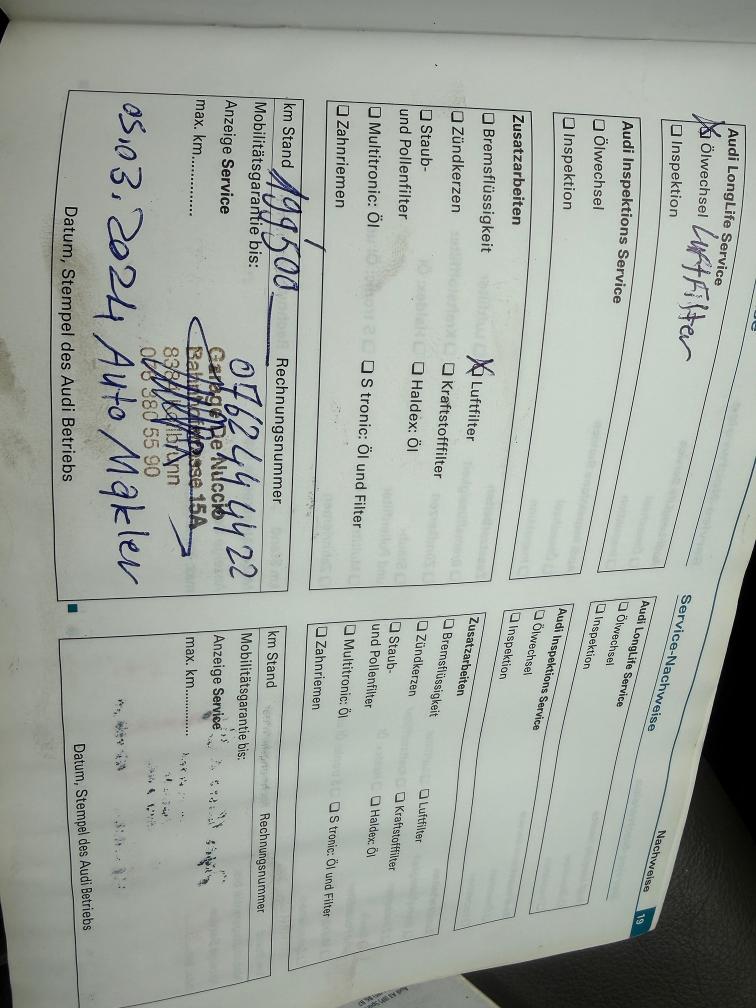 Nachweise 19
Service-Nachweise
Audi LongLife Service
☒ Ölwechsel Luftfilter
☐ Inspektion
Audi Inspektions Service
☐ Ölwechsel
☐ Inspektion
Zusatzarbeiten
☐ Bremsflüssigkeit ☒ Luftfilter
☐ Zündkerzen ☐ Kraftstofffilter
☐ Staub- ☐ Haldex: Öl
und Pollenfilter
☐ Multitronic: Öl ☐ S tronic: Öl und Filter
☐ Zahnriemen
km Stand 199'500 Rechnungsnummer
Mobilitätsgarantie bis:
0762444422
Anzeige Service
Garage De Nuccio
max. km..............
Bahnhofstrasse 15A
05.03.2024 Auto Makler
Datum, Stempel des Audi Betriebs
Audi LongLife Service
☐ Ölwechsel
☐ Inspektion
Audi Inspektions Service
☐ Ölwechsel
☐ Inspektion
Zusatzarbeiten
☐ Bremsflüssigkeit ☐ Luftfilter
☐ Zündkerzen ☐ Kraftstofffilter
☐ Staub- ☐ Haldex: Öl
und Pollenfilter
☐ Multitronic: Öl ☐ S tronic: Öl und Filter
☐ Zahnriemen
km Stand Rechnungsnummer
Mobilitätsgarantie bis:
Anzeige Service
max. km..............
Datum, Stempel des Audi Betriebs